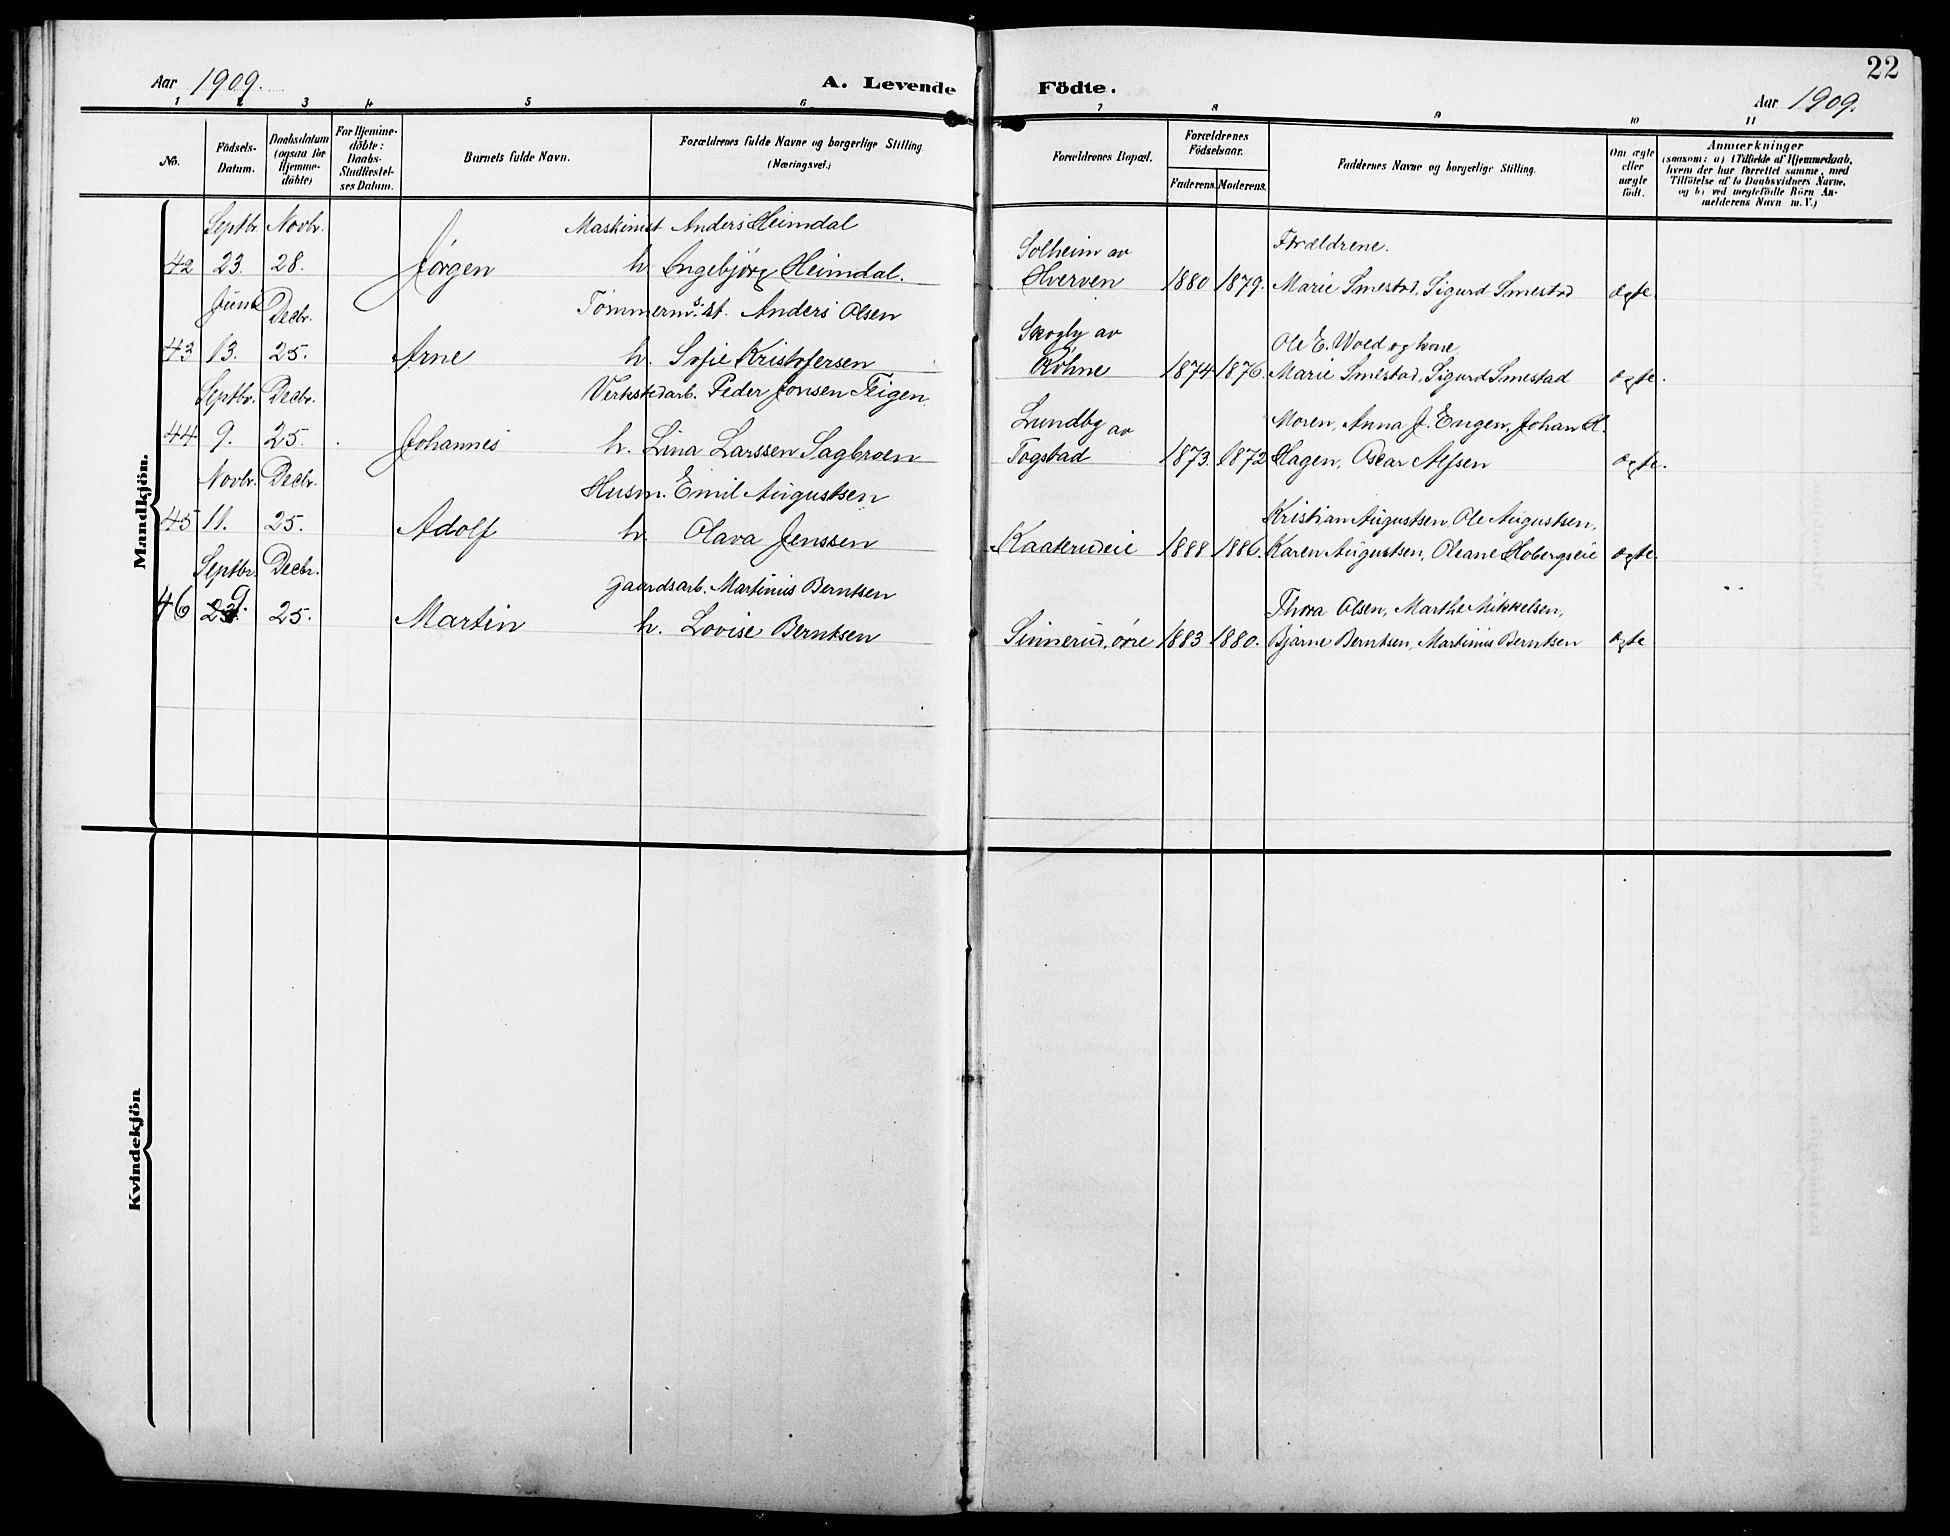 22
Aar 1909.
A. Levende Födte.
Aar 1909.
1 2 3 4 5 6 7 8 9 10 11
No.
Födsels-
Datum.
Daabsdatum
(ogsaa for
Hjemme-
döbte)
For Hjemme-
döbte:
Daabs-
Stadfæstel-
ses Datum.
Barnets fulde Navn.
Forældrenes fulde Navne og borgerlige Stilling
(Næringsvei.)
Forældrenes Bopæl.
Forældrenes
Födselsaar.
Faderens. Moderens.
Faddernes Navne og borgerlige Stilling.
Om ægte
eller
uægte
født.
Anmærkninger
(saasom: a) i Tilfælde af Hjemmedaab,
hvem der har forrettet samme, med
Tilföielse af to Daabsvidners Navne,
og b) ved uægtefödte Börn An-
melderens Navn m. V.)
Mandkjön.
Septbr. Novbr. Maskinist Anders Heimdal Solheim av Forældrene.
42 23. 28. Jørgen h. Ingebjörg Heimdal. Hverven 1880 1879. Marie Smestad, Sigurd Smestad ægte.
Juni Decbr. Tømmerm. st. Anders Olsen Skogly av Ole E. Wold og kone
43 13. 25. Arne h. Sofie Kristofersen Røhne 1874 1876. Marie Smestad, Sigurd Smestad ægte.
Septbr. Decbr. Verkstedarb. Peder Jonsen Teigen Lundby av Moren, Anna J. Engen, Johan H.
44 9. 25. Johannes h. Lina Larssen Sagbroen Togstad 1873. 1872 Hagen, Oscar Alfsen ægte.
Novbr. Decbr. Husm. Emil Augustsen Kristian Augustsen, Ole Augustsen,
45 11. 25. Adolf h. Olava Jenssen Kaaterudeie 1888 1886. Karen Augustsen, Oleane Hobergseie ægte.
Septbr. Decbr. Gaardsarb. Martinius Berntsen Thora Olsen, Marthe Mikkelsen,
46 9. 25. Martin h. Lovise Berntsen Sinnerud, øvre 1883 1880. Bjarne Berntsen, Martinius Berntsen ægte
Kvindekjön